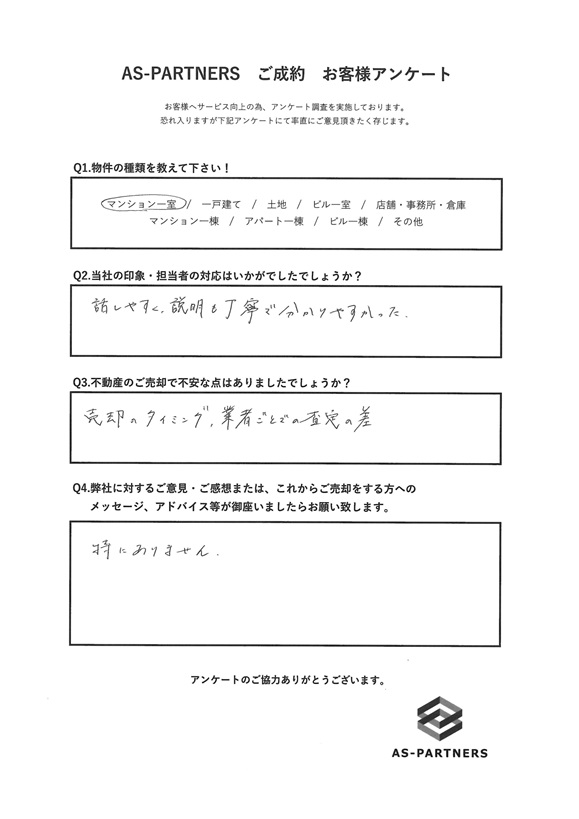 AS-PARTNERS　ご成約　お客様アンケート
お客様へサービス向上の為、アンケート調査を実施しております。
恐れ入りますが下記アンケートにて率直にご意見頂きたく存じます。
Q1.物件の種類を教えて下さい！
マンション一室 / 一戸建て / 土地 / ビル一室 / 店舗・事務所・倉庫
マンション一棟 / アパート一棟 / ビル一棟 / その他
Q2.当社の印象・担当者の対応はいかがでしたでしょうか？
話しやすく、説明も丁寧で分かりやすかった。
Q3.不動産のご売却で不安な点はありましたでしょうか？
売却のタイミング、業者ごとでの査定の差
Q4.弊社に対するご意見・ご感想または、これからご売却をする方への
メッセージ、アドバイス等が御座いましたらお願い致します。
特にありません。
アンケートのご協力ありがとうございます。
AS-PARTNERS